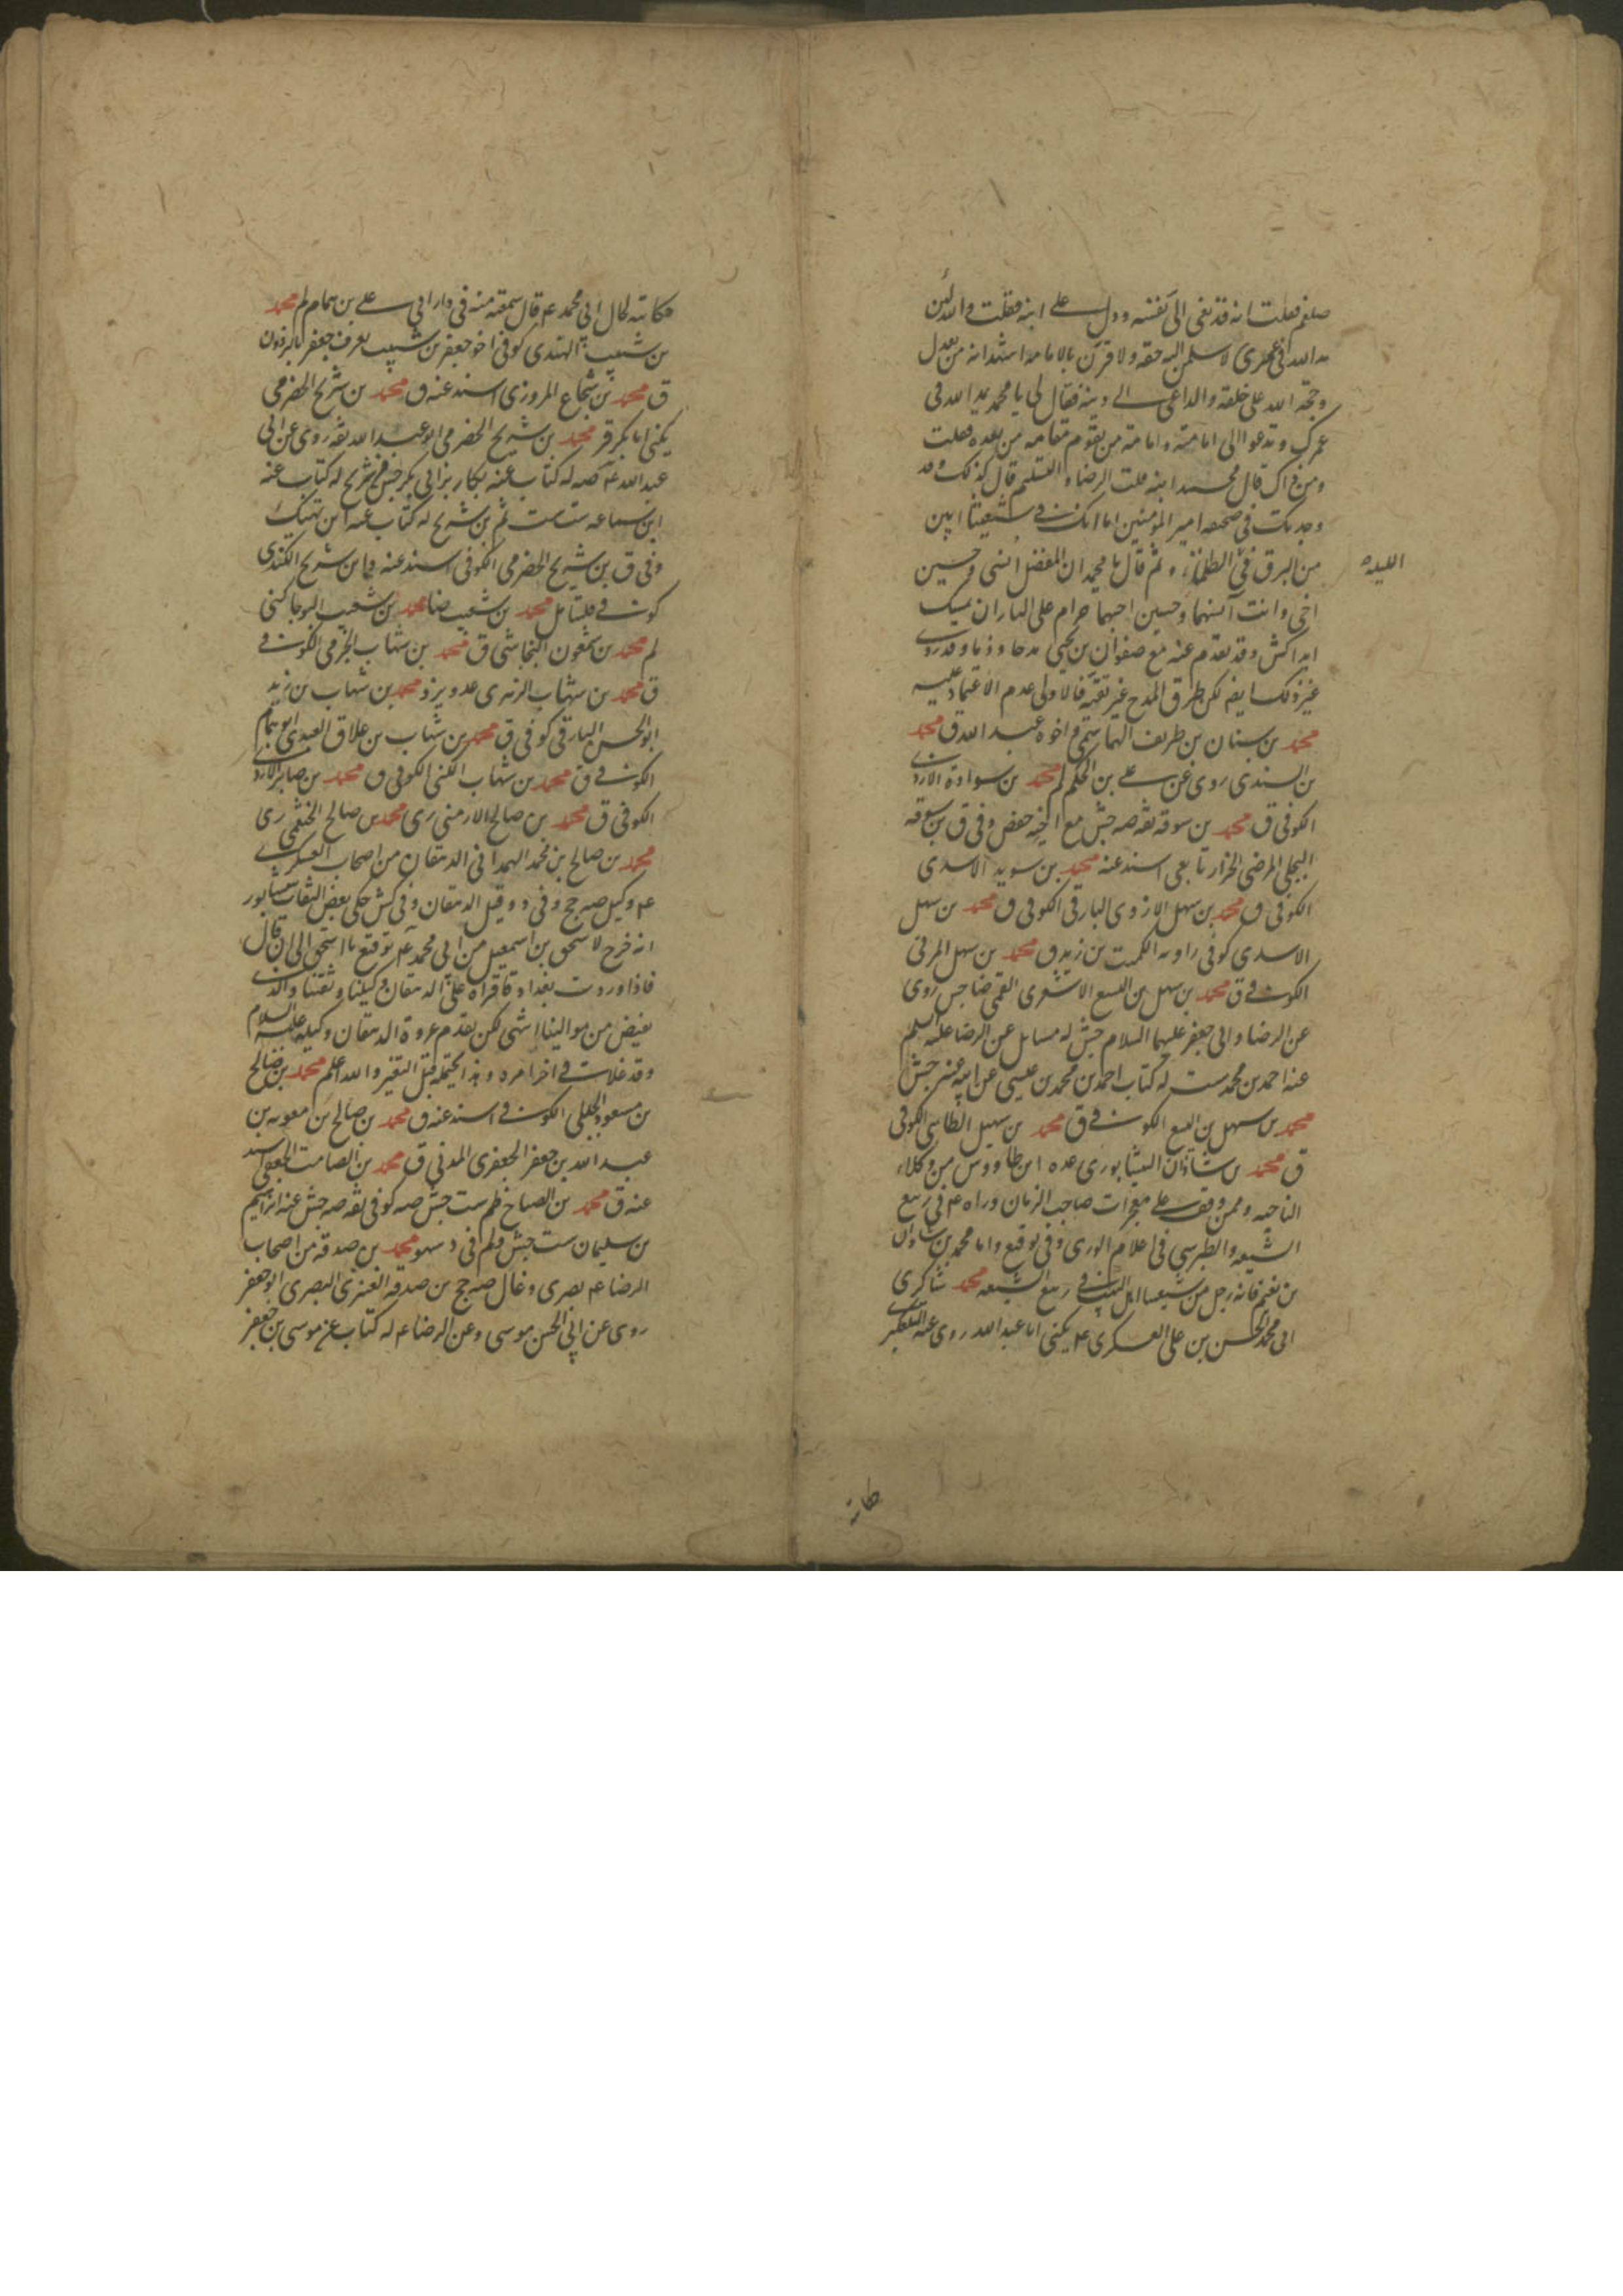 صلعم فعلت انه قد نعى الى نفسه ودل على ابنه فقلت والله لئن
مد الله في عمري لاسلمن اليه حقه ولاقرن بالامامة اشهد انه من بعدك
وحجة الله على خلقه والداعي الى دينه فقال لي يا محمد يمد الله في
عمرك وتدعوا الى امامته وامامة من يقوم مقامه من بعده فقلت
ومن ذاك قال محمد ابنه قلت الرضا والتسليم قال كذلك وقد
وجدتك في صحيفة امير المؤمنين اما انك في شيعتنا ابين
من البرق في الظلماء ثم قال يا محمد ان المفضل انسي وحسين
الليلة
اخي وانت انسهما وحسين احبهما حرام على النار ان تمسك
ابدا كش وقد تقدم عنه مع صفوان بن يحيى مدحا وذما وقد روى
غير ذلك ايضا لكن طرق المدح غير نقية فالاولى عدم الاعتماد عليه
محمد بن سنان بن طريف الهاشمي واخوه عبد الله ق محمد
بن السندي روى عن علي بن الحكم لم محمد بن سوادة الازدي
الكوفي ق محمد بن سوقه ثقه صه جش مع اخيه حفص وفي ق بن سوقه
البجلي المرضي الخزاز تابعي اسند عنه محمد بن سويد الاسدي
الكوفي ق محمد بن سهل الازدي البارقي الكوفي ق محمد بن سهل
الاسدي كوفي راويه الكميت بن زيد ق محمد بن سهل المرني
الكوفي ق محمد بن سهل بن اليسع الاشعري القمي ضا جش روى
عن الرضا وابي جعفر عليهما السلام جش له مسايل عن الرضا عليه السلم
عنه احمد بن محمد ست له كتاب احمد بن محمد بن عيسى عن ابيه عنه جش
محمد بن سهل بن اليسع الكوفي ق محمد بن سهيل الطاسي الكوفي
ق محمد بن شاذان النيشابوري عده ابن طاووس من وكلاء
الناحيه وممن وقف على معجزات صاحب الزمان وراه ع في ربيع
الشيعه والطبرسي في اعلام الورى وفي توقيع واما محمد بن شاذان
بن نعيم فانه رجل من شيعتنا اهل البيت في ربيع الشيعه محمد شاكري
ابي محمد الحسن بن علي العسكري ع يكنى ابا عبد الله روى عنه التلعكبري
حكاته
حكاته لحال ابي محمد ع قال سمعته منه في دار ابي علي بن همام لم محمد
بن شبيب الهندي كوفي اخو جعفر بن شبيب يعرف جعفر بالبرذون
ق محمد بن شجاع المروزي اسند عنه ق محمد بن شريح الحضرمي
يكنى ابا بكر قر محمد بن شريح الحضرمي ابو عبد الله ثقه روى عن ابي
عبد الله ع صه له كتاب عنه بكار بن ابي بكر جش شريح له كتاب عنه
ابن سماعه ست ثم بن شريح له كتاب عنه ابن نهيك
وفي ق بن شريح الحضرمي الكوفي اسند عنه وابن شريح الكندي
كوفي فليتامل محمد بن شعيب ضا محمد بن شعيب البوجاكني
لم محمد بن شمعون النجاشي ق محمد بن شهاب الجرمي الكوفي
ق محمد بن شهاب الزهري عدو ين د محمد بن شهاب بن زيد
ابو الحسن البارقي كوفي ق محمد بن شهاب بن علاق العبدي ابو تمام
الكوفي ق محمد بن شهاب الكنى الكوفي ق محمد بن صابر الازدي
الكوفي ق محمد بن صالح الارمني ري محمد بن صالح الخثعمي ري
محمد بن صالح بن محمد الهمداني الدهقان من اصحاب العسكري
ع وكيل صه جخ وفي د وقيل الدهقان وفي كش حكى بعض الثقات بنيشابور
انه خرج لاسحق بن اسمعيل من ابي محمد ع توقيع يا اسحق الى ان قال
فاذا وردت بغداد فاقراه على الدهقان وكيلنا وثقتنا والذي
يقبض من موالينا انتهى لكن تقدم عروة الدهقان وكيله عليه السلام
وقد غلات في اخر امره وهذا يحتمله قبل التغير والله اعلم محمد بن صالح
بن مسعود الجدلي الكوفي اسند عنه ق محمد بن صالح بن معويه بن
عبد الله بن جعفر الجعفري المدني ق محمد بن الصامت الجعفي اسند
عنه ق محمد بن الصباح ظم ست جش صه كوفي ثقه صه جش عنه ابراهيم
بن سليمان ست جش ولم في د سهو محمد بن صدقه من اصحاب
الرضا ع بصري وغال صه جخ بن صدقه العنبري البصري ابو جعفر
روى عن ابي الحسن موسى وعن الرضا ع له كتاب عن موسى بن جعفر